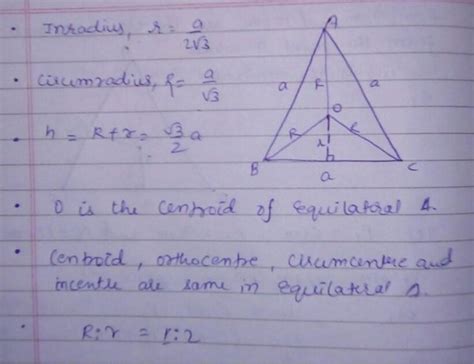 • Inradius, r = a/2√3
• Circumradius, R = a/√3
• h = R+r = √3/2 a
A
a
R
a
O
R
R
r
B
a
C
• O is the centroid of equilateral Δ.
• Centroid, orthocentre, circumcentre and
incentre are same in equilateral Δ.
• R:r = 1:2